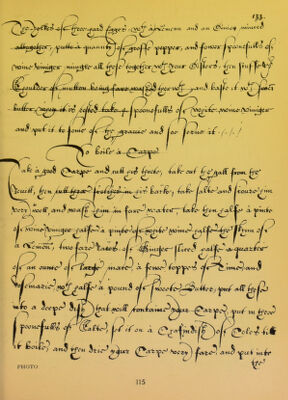 133.
yolkes of three hard egges, wth a Lemmon and an Onnion minced
altogether, putto a quantity of grosse pepper, and fower spoonefulls of
wine viniger mingle all these together, wth your Oisters, then
shoulder of mutton being faire washed ther wth, and baste it wth sweet
butter, when it is rosted take 4 spoonefulls of white wine viniger
and put it to some of the gravie and soe serve it
To boile a Carpe
Take a good Carpe and cutt his throte, take out the gall from the
then cutt three in his backe, take salte and scoure him
very well, and wash him in faire water, take then halfe a pinte
of wine viniger halfe a pinte of white wine halfe the
of a Lemon, two fare rases of Ginger sliced halfe a quarter
of an ounce of large mace, a fewe toppes of Time, and
rosemarie wth halfe a pound of sweete Butter, put all these
into a deepe dish that will contayne your Carpe, put in three
spoonefulls of salte, set it on a Chafindish of Coles till
it boile, and then drie your Carpe very faire, and put into
the
PHOTO
115